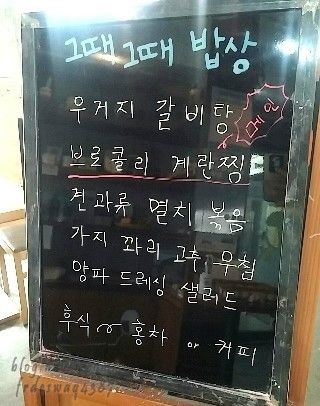 그때 그때 밥상
우거지 갈비탕
메인
브로콜리 계란찜
견과류 멸치 볶음
가지 꽈리 고추 무침
양파 드레싱 샐러드
후식 ~ 홍차 or 커피